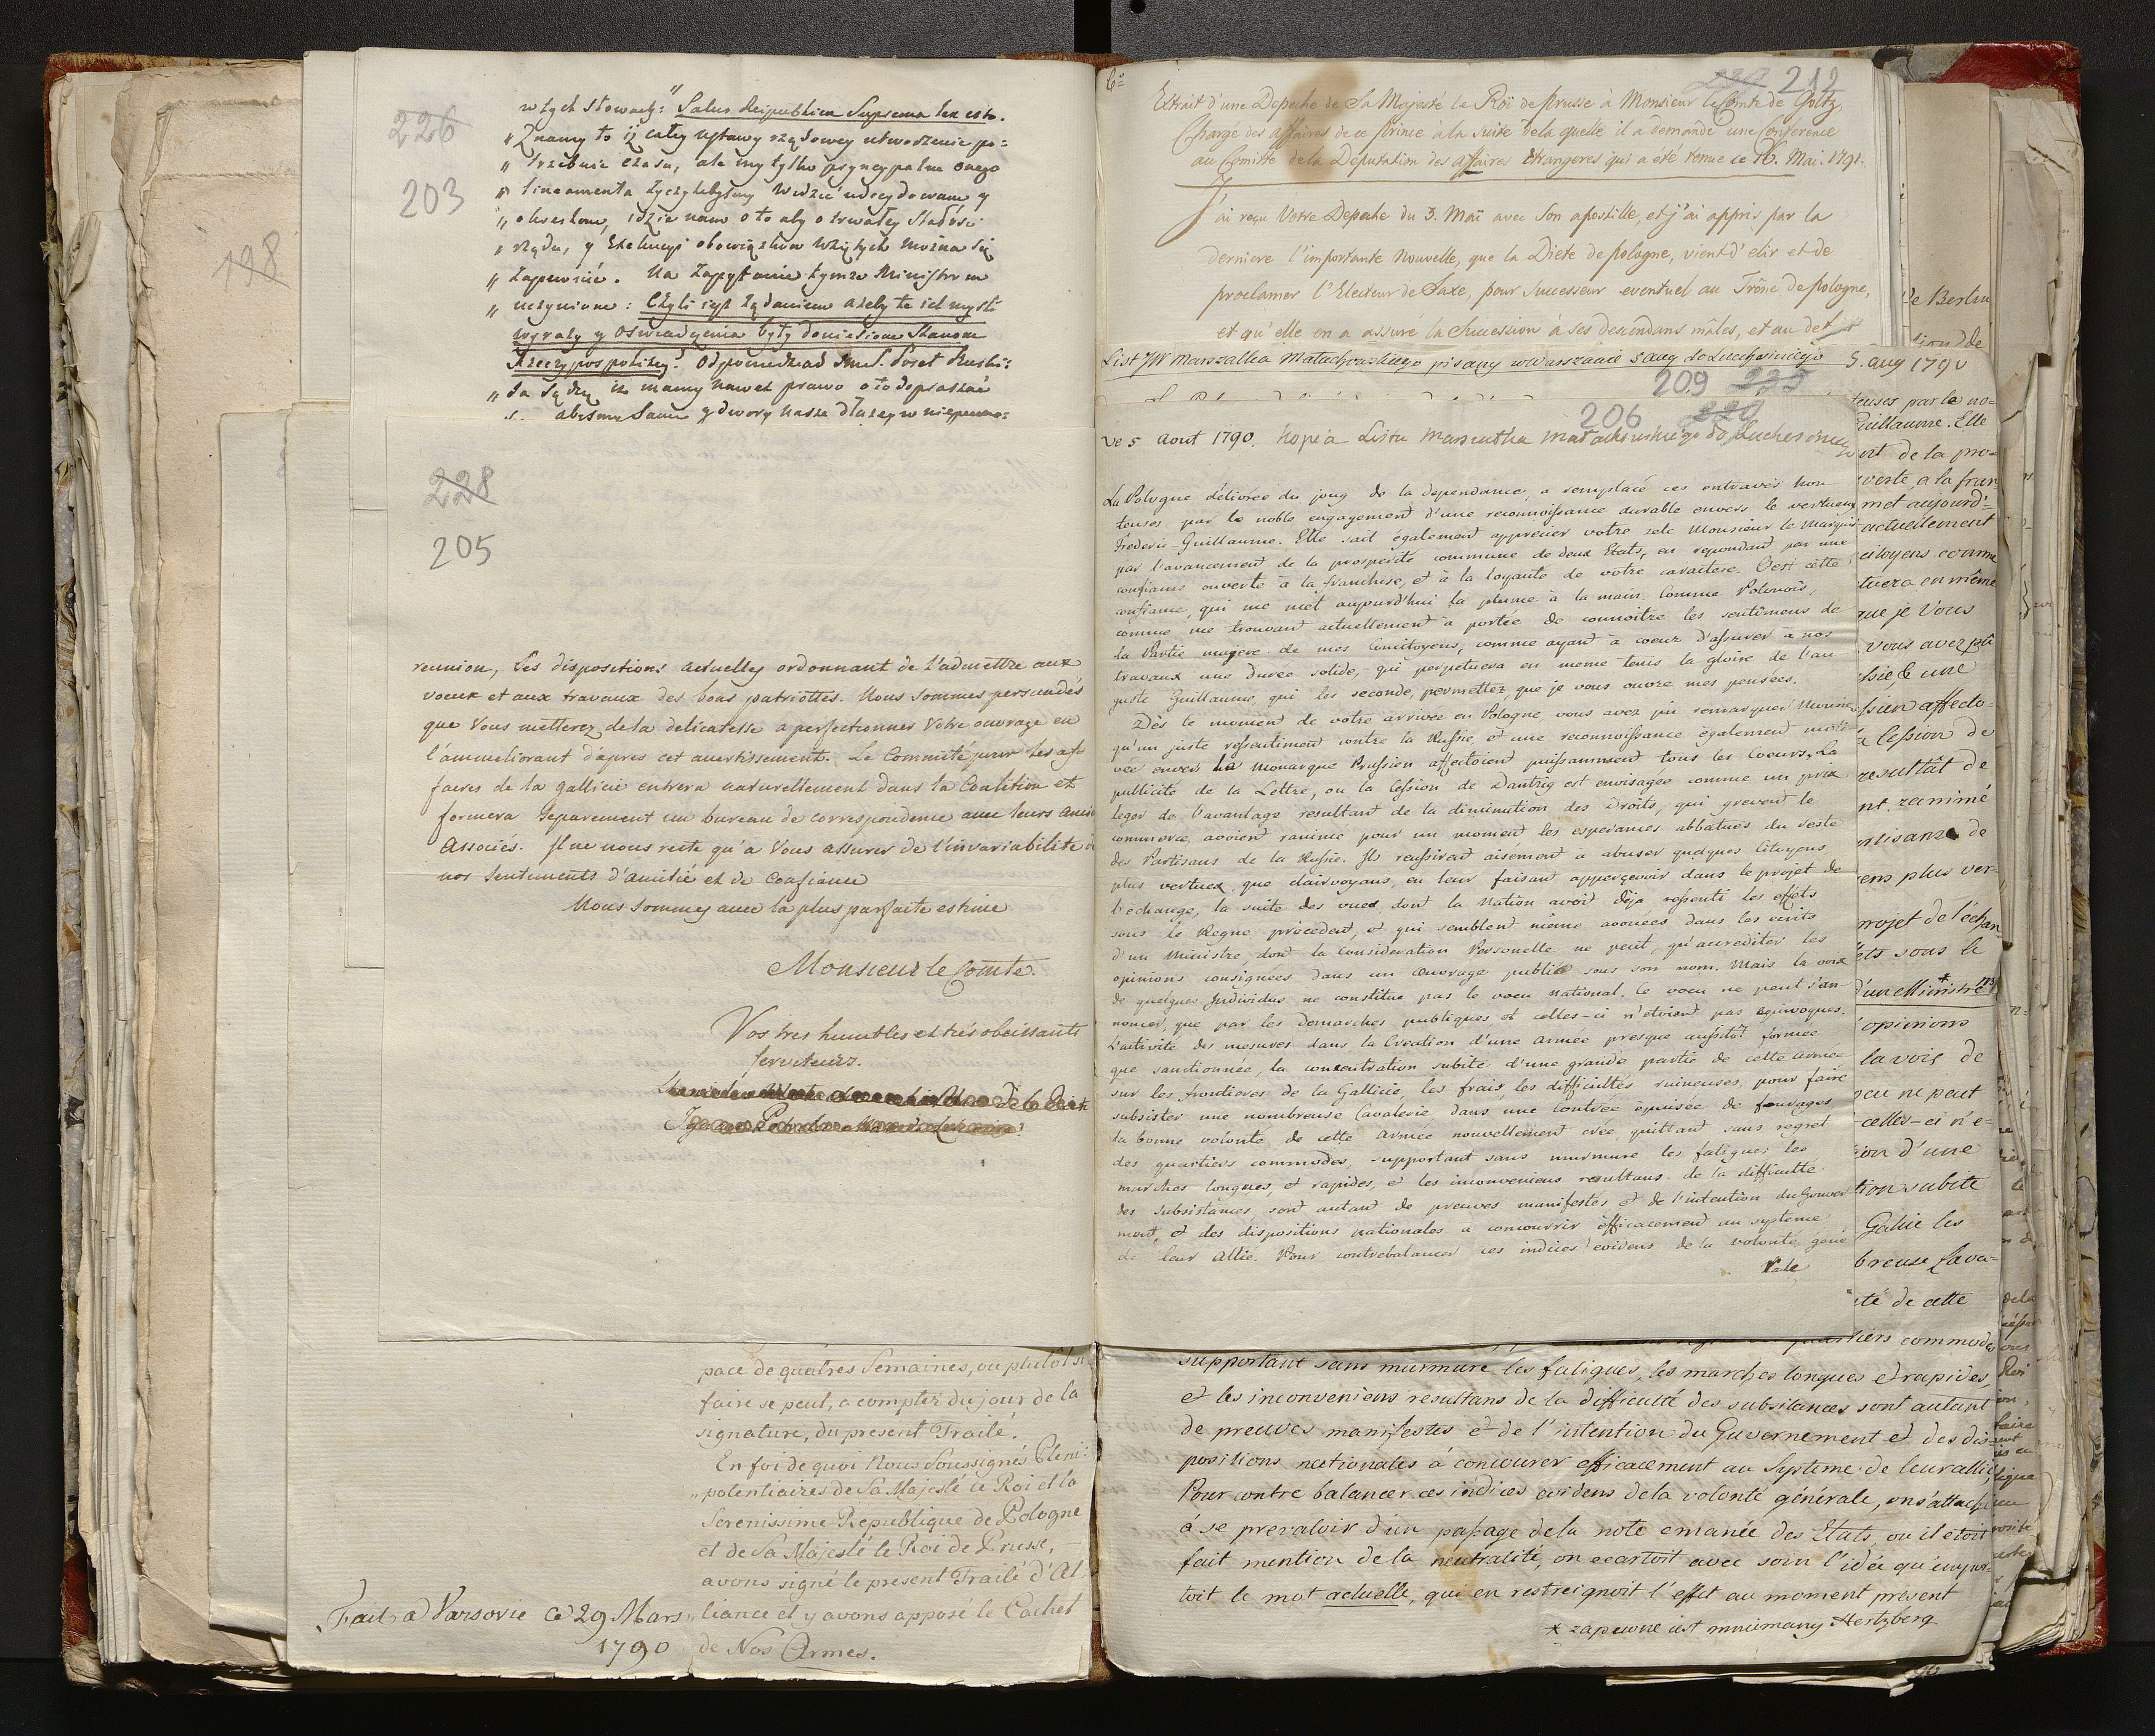 226
203
w tych słowach: "Salus Reipublicae Suprema lex esto.
"Znamy to iż całey ustawy rządowey utworzenie po=
"trzebuie czasu, ale my tylko pryncypalne onego
"lineamenta życzylibyśmy widzieć udecydowane y
"okreslone, idzie nam o to aby o trwałey stałości
"rządu, y Exekucyi obowiązkow wziętych można się
"zapewnić. Na zapytanie tymże Ministrom
"uczynione: Czyli iest żądaniem ażeby te ich mysli
wyrazy y oswiadczenia były doniesione Stanom
Rzeczypospolitey? odpowiedział Poseł Pruski:
"Ja sądzę iż mamy nawet prawo o to dopraszać
abysmy Sami y dwory nasze dłużey w niepewno=
198
228
205
reunion, Les dispositions actuelles ordonnant de l'admettre aux
voeux et aux travaux des bons patriottes. Nous sommes persuadés
que Vous metterez de la delicatesse a perfectionner Votre ouvrage en
l'ammeliorant d'apres cet avertissement. Le Committé pour les af
faires de la gallicie entrera naturellement dans la Coalition et
formera separement un bureau de correspondence avec leurs anciens
Associés. Il ne nous reste qu'a Vous assurer de l'invariabilité de
nos sentiments d'amitié et de Confiance
Nous sommes avec la plus parfaite estime
Monsieur le Comte.
Vos tres humbles et très obeissants
serviteurs.
pace de quatres Semaines, ou plutôt si
faire se peut, a compter du jour de la
signature, du present Traité.
En foi de quoi Nous Soussignés Pleni=
"potentiaires de Sa Majesté le Roi et la
Serenissime Republique de Pologne
et de Sa Majesté le Roi de Prusse,
avons signé le present Traité d'Al
Fait à Varsovie ce 29 Mars liance et y avons apposé le Cachet
1790 de Nos Armes.
6°
230 212
Extrait d'une Depeche de Sa Majesté le Roi de Prusse à Monsieur le Comte de Goltz,
Chargé des affaires de ce Prince à la suite de la quelle il a demandé une Conférence
au Comitté de la Deputation des affaires Etrangeres qui a été tenue ce 16. Mai. 1791.
J'ai reçu Votre Depeche du 3. Maï avec son apostille, et j'ai appris par la
derniere l'importante Nouvelle, que la Diete de pologne, vient d'elir et de
proclamer l'Electeur de Saxe, pour Successeur eventuel au Trône de pologne,
et qu'elle en a assuré la Succession à ses descendans mâles, et au def
List JW Marszałka Małachowskiego pisany w Warszawie 5 Aug do Lucchesiniego 5. aug 1790
209
206
Ce 5 Aout 1790. Kopia Listu Marszałka Małachowskiego do Luchesiniego
La Pologne délivrée du joug de la dependance, a remplacé ces entraves hon
teuses par le noble engagement d'une reconnoissance durable envers le vertueux
Frederic-Guillaume. Elle sait également apprecier votre zele Monsieur le Marquis
par l'avancement de la prosperité commune de deux Etats, en repondant par une
confiance ouverte à la franchise, et à la loyauté de votre caractere. C'est cette
confiance, qui me met aujourd'hui la plume à la main. Comme Polonois,
comme me trouvant actuellement à portée de connoitre les sentimens de
la Partie majeure de mes Concitoyens, comme ayant à coeur d'assurer à nos
travaux une durée solide, qui perpetuera en meme tems la gloire de l'au
guste Guillaume qui les seconde, permettez, que je vous ouvre mes pensées.
Dès le moment de votre arrivée en Pologne vous avez pu remarquer
qu'un juste ressentiment contre la Russie, et une reconnoissance également moti
vée envers le Monarque Prussien affectoient puissamment tous les Coeurs. La
publicité de la Lettre, ou la Cession de Dantzig est envisagée comme un prix
leger de l'avantage resultant de la diminution des Droits, qui grevent le
commerce avoient ranimé pour un moment les esperances abbatues du reste
des Partisans de la Russie. Ils reussirent aisément a abuser quelques Citoyens
plus vertueux, que clairvoyans, en leur faisant appercevoir dans le projet de
l'échange, la suite des vues dont la Nation avoit déja ressenti les effets
sous le Regne précédent, et qui semblent même avouées dans les ecrits
d'un Ministre, dont la Consideration Personelle ne peut, qu'accrediter les
opinions consignées dans un ouvrage publié sous son nom. Mais la voix
de quelques Individus ne constitue pas le voeu National. Ce voeu ne peut s'an
noncer, que par les Demarches publiques et celles-ci n'étoient pas equivoques.
L'activité des mesures dans la Creation d'une Armée presque aussitôt formée
que sanctionnée, la concentration subite d'une grande partie de cette armée
sur les frontieres de la Gallicie, les frais, les difficultés ruineuses, pour faire
subsister une nombreuse Cavalerie dans une contrée épuisée de fourages
la bonne volonté de cette Armée nouvellement crée, quittant sans regret
des quartiers commodes, supportant sans murmure les fatigues les
marches longues, et rapides, et les inconveniens resultans de la difficulté
des subsistances, sont autant de preuves manifestes et de l'intention du Gouver
ment, et des dispositions nationales a concourrir efficacement au systeme
de leur Allié. Pour contrebalancer ces indices evidens de la volonté géné
rale
de Berlin
teuses par le no=
Guillaume. Elle
ent de la pro=
verte, a la fran
met aujourd'=
actuellement
citoyens comme
tuera en même
que je Vous
vous avez pû
ssie & une
ssien affecto=
a Cession de
resultât de
nt. ranimé
artisans de
ens plus ver=
projet de l'échan
ets sous le
d'un Ministre*
opinions
la voix de
voeu ne peut
celles-ci n'e=
ion d'une
tion subite
Galicie les
breuse Cava=
té de cette
quartiers commodes
supportant sans murmure les fatigues, les marches longues et rapides,
et les inconveniens resultans de la difficulté des subsistances sont autant
de preuves manifestes & de l'intention du Guvernement et des dis=
positions nationales à concourer efficacement au Systeme de leur allié
Pour contre balancer ces indices evidens de la volonté générale, on s'attache
à se prevaloir d'un passage de la note emanée des Etats, ou il étoit
fait mention de la neutralité, on ecartoit avec soin l'idée qu'empor=
toit le mot actuelle, qui en restreignoit l'effet au moment présent
* zapewne iest mniemany Hertzberg